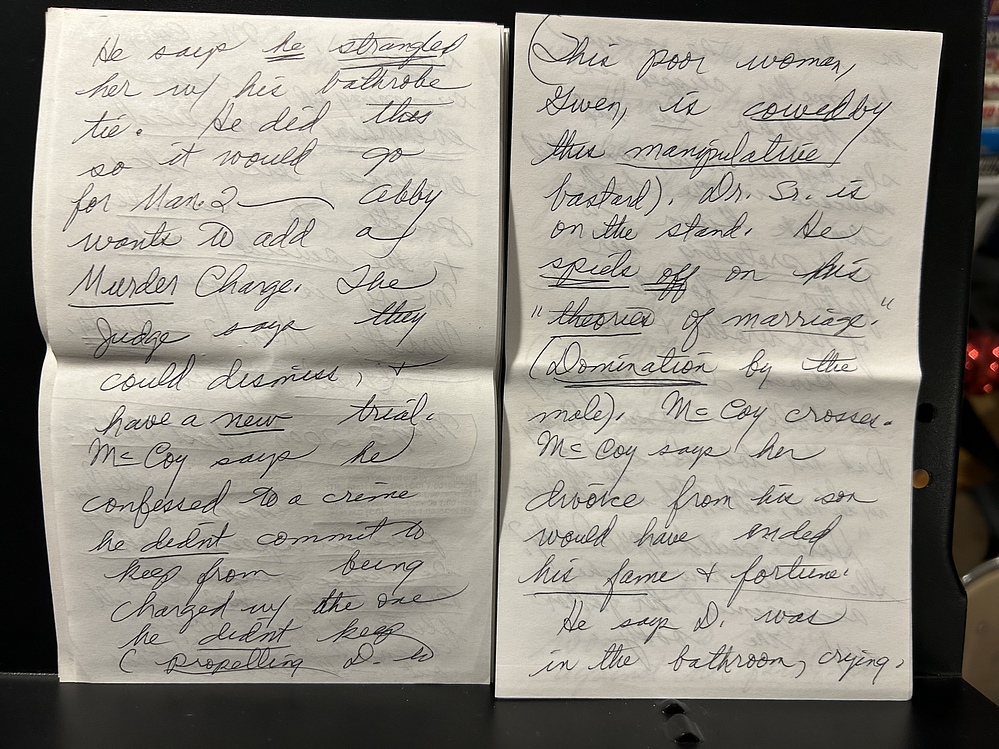 He says he strangled
her w/ his bathrobe
tie. He did this
so it would go
for Man. 2 — Abby
wants to add a
Murder Charge. The
Judge says they
could dismiss, &
have a new trial.
McCoy says he
confessed to a crime
he didnt commit to
keep from being
charged w/ the one
he didnt keep
(propelling D. to
(This poor woman,
Gwen, is cowed by
this manipulative
bastard). Dr. Sr. is
on the stand. He
spiels off on his
"theories of marriage."
(Domination by the
male). McCoy crosses.
McCoy says her
divorce from his son
would have ended
his fame & fortune.
He says D. was
in the bathroom, crying,